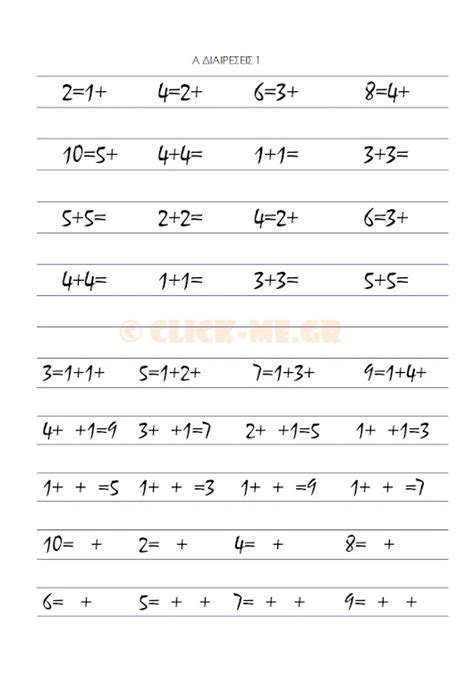 Α ΔΙΑΙΡΕΣΕΙΣ 1
2=1+ 4=2+ 6=3+ 8=4+
10=5+ 4+4= 1+1= 3+3=
5+5= 2+2= 4=2+ 6=3+
4+4= 1+1= 3+3= 5+5=
© CLICK-ME.GR
3=1+1+ 5=1+2+ 7=1+3+ 9=1+4+
4+ +1=9 3+ +1=7 2+ +1=5 1+ +1=3
1+ + =5 1+ + =3 1+ + =9 1+ + =7
10= + 2= + 4= + 8= +
6= + 5= + + 7= + + 9= + +